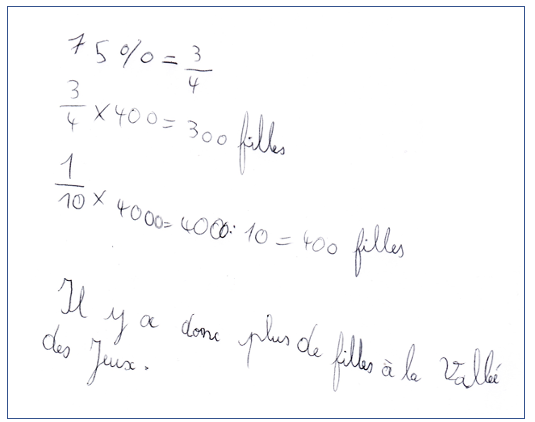 75% = 3/4
3/4 × 400 = 300 filles
1/10 × 4000 = 4000 : 10 = 400 filles
Il y a donc plus de filles à la Vallée
des Jeux.